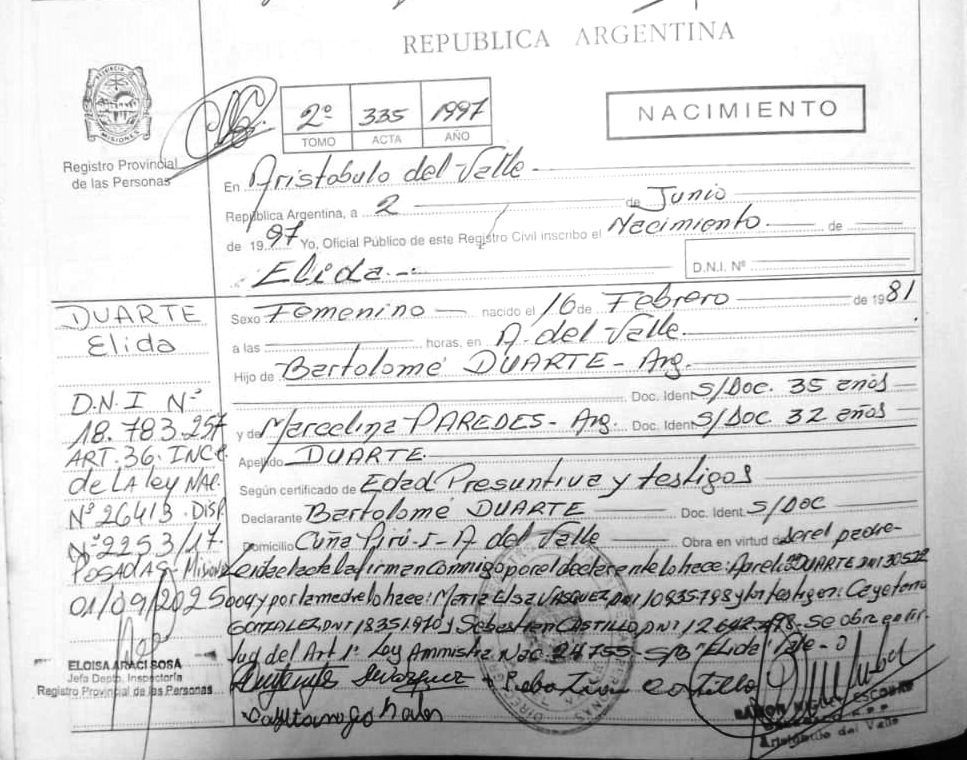 REPUBLICA ARGENTINA
PROVINCIA
MISIONES
Registro Provincial
de las Personas
2º 335 1997
TOMO ACTA AÑO
NACIMIENTO
En Aristobulo del Valle
República Argentina, a 2 de Junio
de 1997 Yo, Oficial Público de este Registro Civil inscribo el Nacimiento de
Elida.-.
D.N.I. Nº
Sexo Femenino nacido el 16 de Febrero de 1981
a las horas, en A. del Valle
Hijo de Bartolomé DUARTE - Arg.
Doc. Ident. S/Doc. 35 años
y de Marcelina PAREDES - Arg. Doc. Ident. S/Doc 32 años
Apellido DUARTE.
Según certificado de Edad Presuntiva y testigos
Declarante Bartolomé DUARTE Doc. Ident. S/Doc
Domicilio Cuña Pirú - I - A del Valle Obra en virtud de ser el padre-
Leída el acta la firman conmigo por el declarante lo hace: DUARTE DNI 30522
004 y por la madre lo hace: Maria Elsa VASQUEZ DNI y los testigos: Cayetano
GONZALEZ DNI 18351970 y Sebastian CASTILLO DNI Se obra en vir-
tud del Art 1º Ley Amnistia Nac. 24755 - S/B "Elida" Vale -
Sebastian Castillo
Cayetano
DUARTE
Elida
D.N.I Nº
18.783.257
ART. 36. INC C
de LA ley NAC.
Nº 26413. DISP
Nº 2253/17.
POSADAS - Misiones
01/09/2025
ELOISA ARACI SOSA
Jefa Depto. Inspectoría
Registro Provincial de las Personas
RAMON MIGUEL ESCOBAR
Aristóbulo del Valle